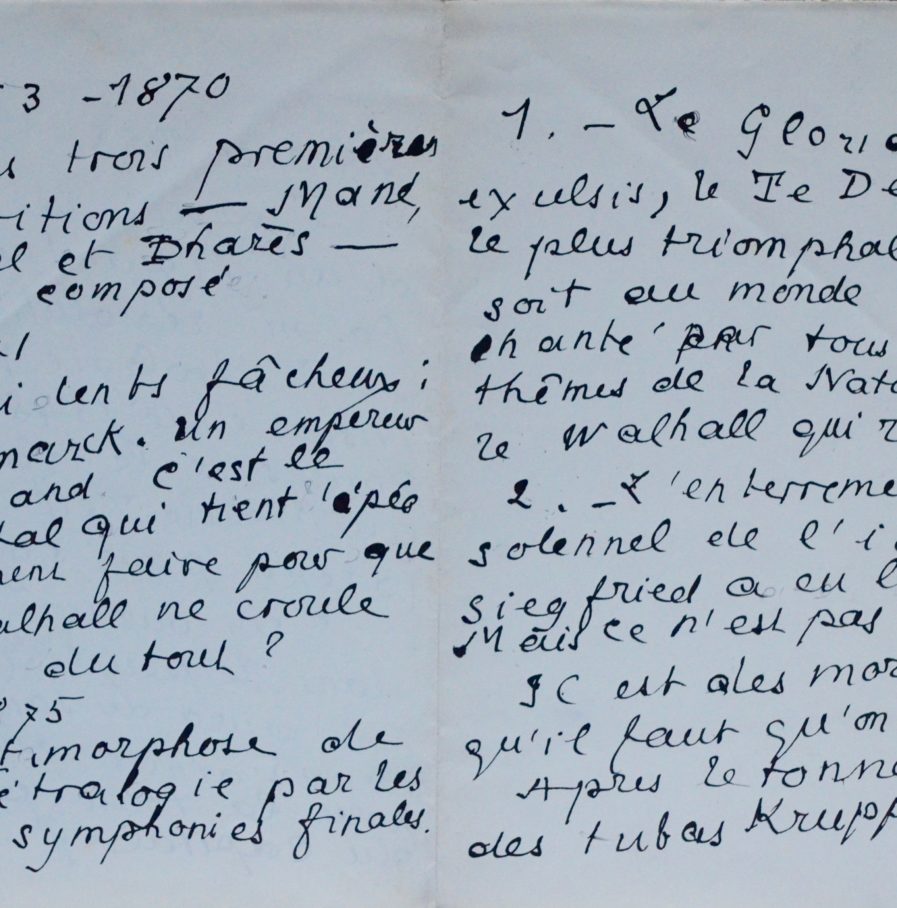 3 - 1870
s trois premières
itions — Mané,
el et Pharès —
composé
i lents fâcheux ;
marck. Un empereur
and c'est le
tal qui tient l'épée
ment faire pour que
alhall ne croule
du tout ?
875
tamorphose de
étralogie par les
symphonies finales.
1. - Le Gloria
exulsis, le Te De
le plus triomphal
soit au monde
chanté par tous
thèmes de la Natu
le Walhall qui r
2. - L'enterreme
solennel de l'i
Siegfried a eu l
Mais ce n'est pas
IC est des mor
qu'il faut qu'on
Après le tonne
des tubas Krupp